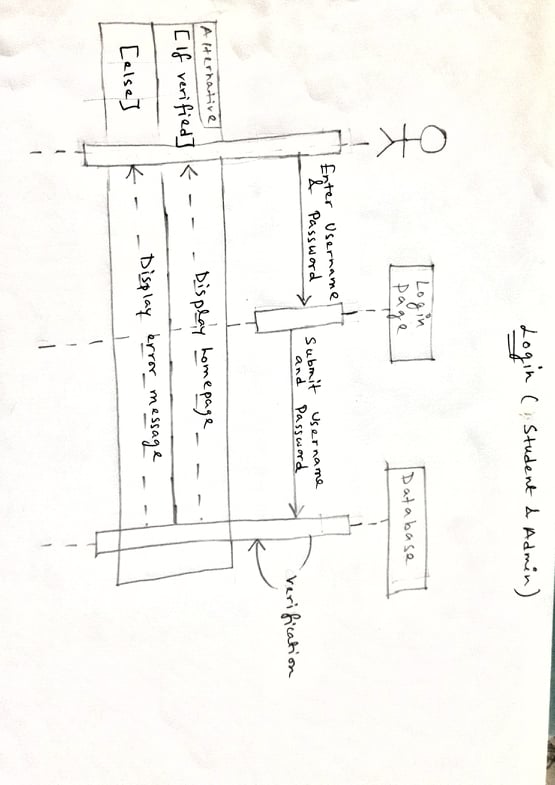 Login (: Student & Admin)
Login
Page
Database
Enter Username
& Password
Submit Username
and Password
verification
Alternative
[If verified]
Display homepage
[else]
Display error message